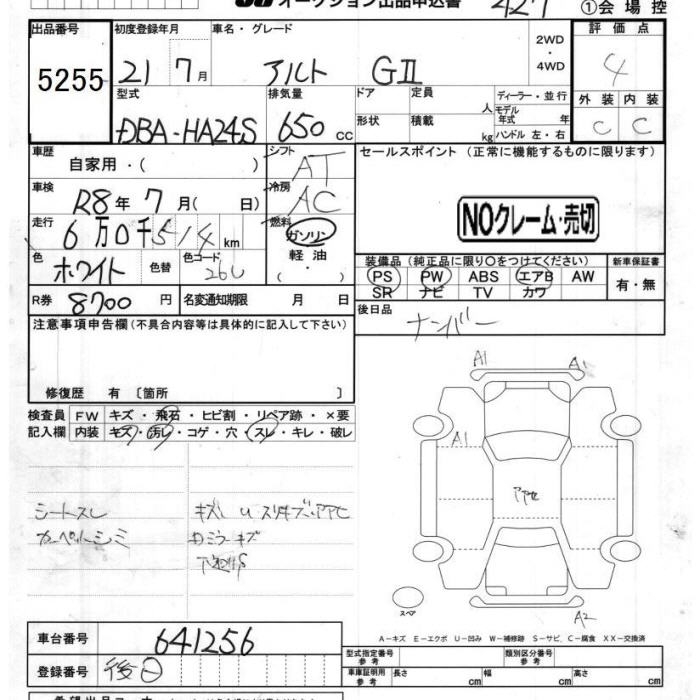 オークション出品申込書
427
①会場控
出品番号
5255
初度登録年月
21 7月
車名・グレード
アルト GⅡ
2WD
・
4WD
評価点
4
外装 内装
C C
型式
DBA-HA24S
排気量
650 CC
ドア
定員
人
形状
積載
kg
ディーラー・並行
モデル年式 年
ハンドル 左・右
車歴
自家用・( )
シフト
AT
セールスポイント(正常に機能するものに限ります)
車検
R8年 7月( 日)
冷房
AC
NOクレーム・売切
走行
6万0千514km
燃料
ガソリン
軽油
( ・ )
色
ホワイト
色替
色コード
26U
装備品(純正品に限り○をつけてください)
新車保証書
PS PW ABS エアB AW
SR ナビ TV カワ
有・無
R券
8700円
名変通知期限
月 日
後日品
ナンバー
注意事項申告欄(不具合内容等は具体的に記入して下さい)
修復歴 有〔箇所 〕
検査員記入欄
FW キズ・飛石・ヒビ割・リペア跡・×要
内装 キズ・汚レ・コゲ・穴・スレ・キレ・破レ
A1
A1
A1
アヤセ
シートスレ
カーペットシミ
キズ U スリキズ・アヤセ
カミラーキズ
スペア
A2
A-キズ E-エクボ U-凹み W-補修跡 S-サビ、C-腐食 XX-交換済
車台番号
641256
登録番号
後日
型式指定番号
参考
類別区分番号
参考
車庫証明用
参考
長さ cm
幅 cm
高さ cm